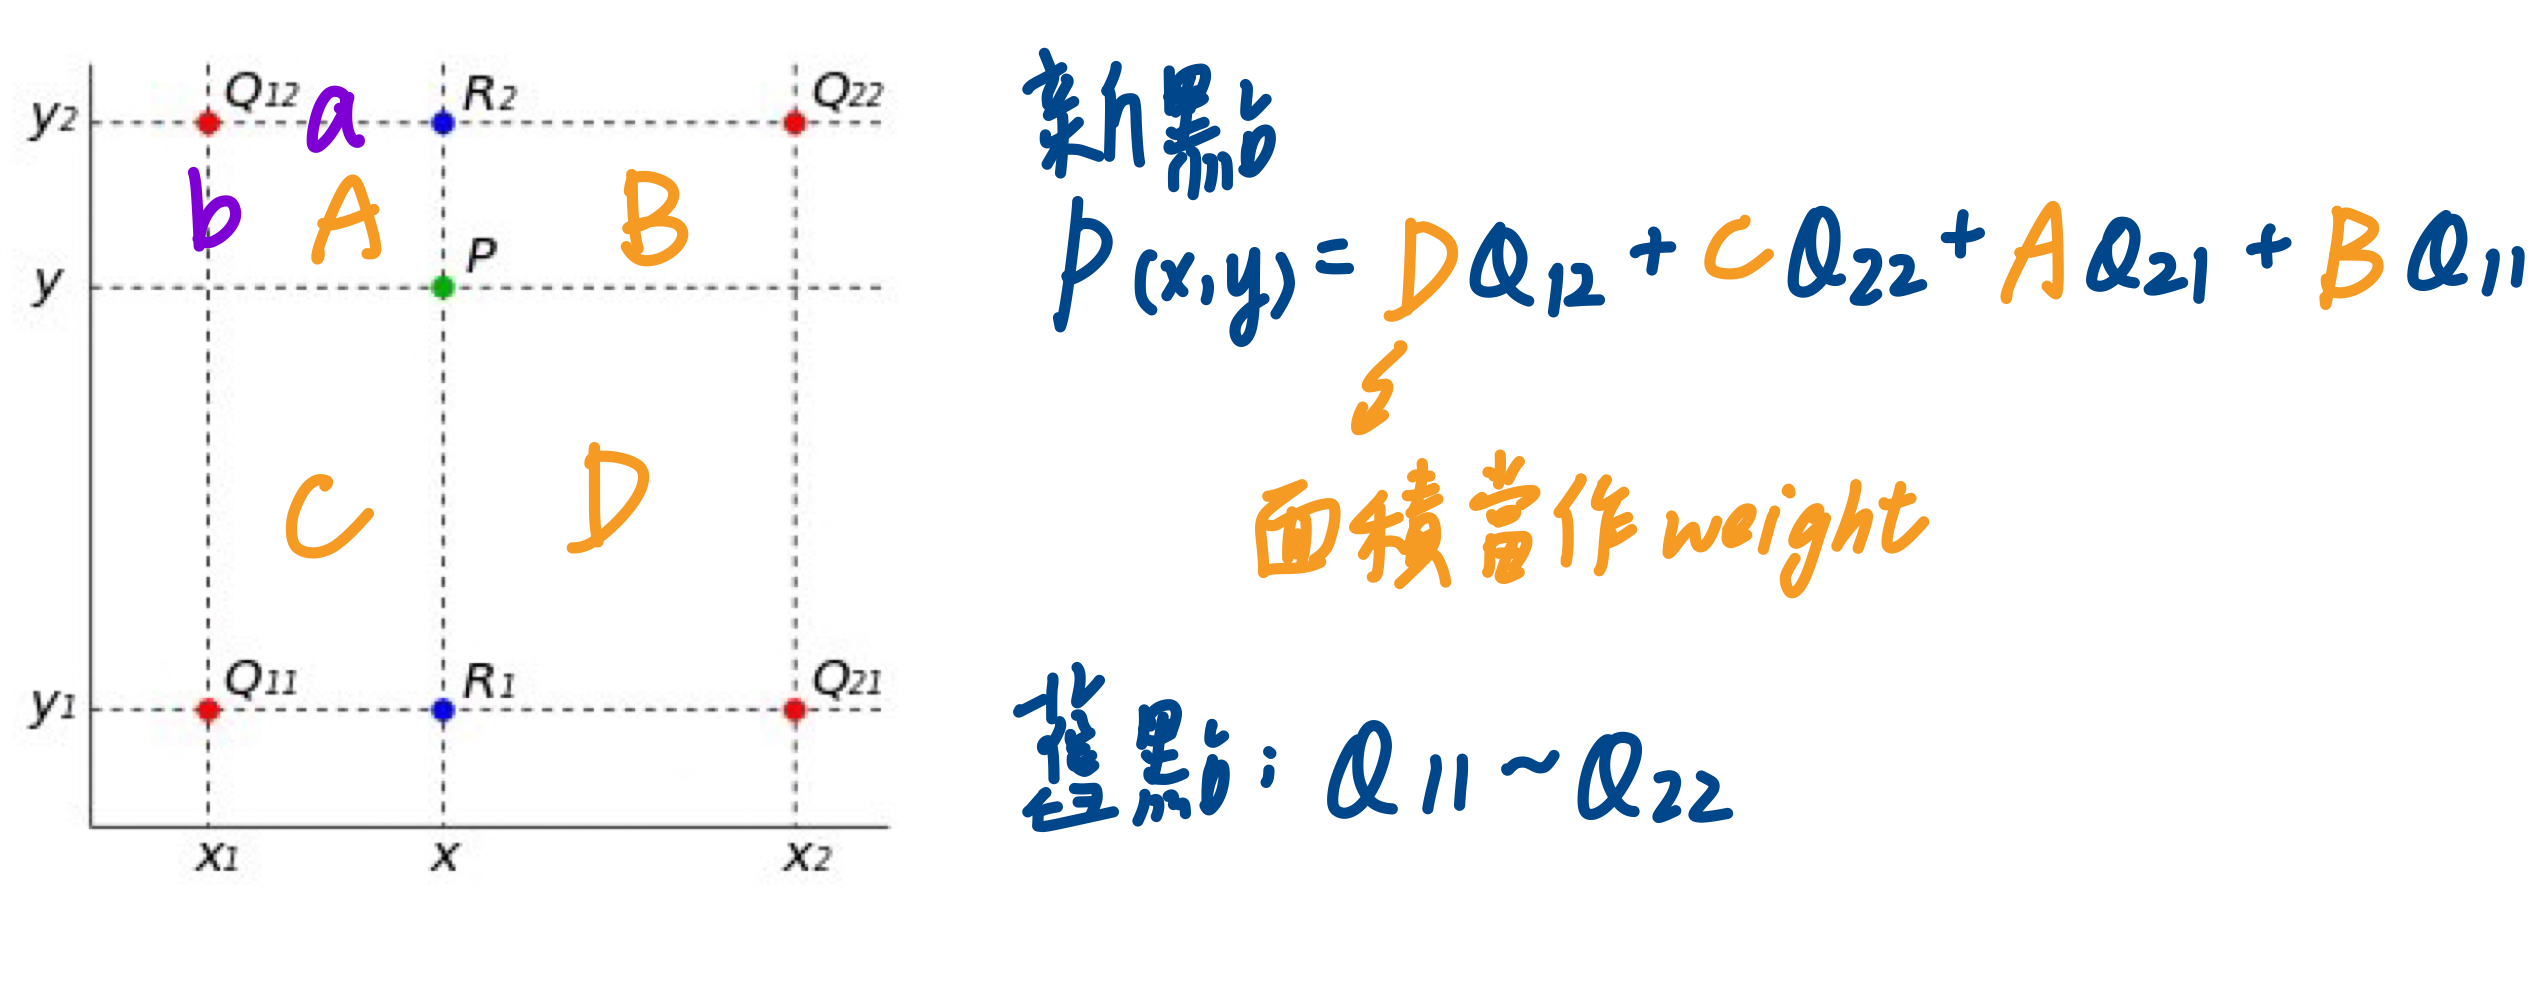 y2 Q12 a R2 Q22
b A B
y P
C D
y1 Q11 R1 Q21
x1 x x2
新點
P(x,y) = DQ12 + CQ22 + AQ21 + BQ11
面積當作weight
舊點: Q11~Q22